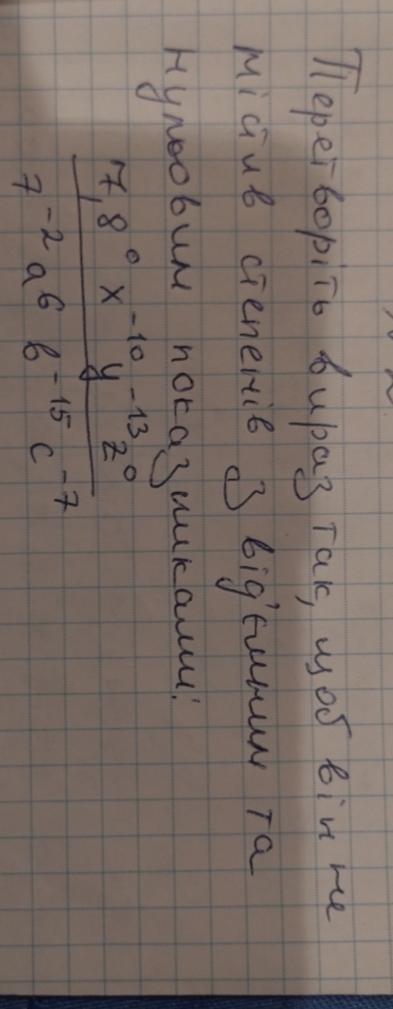 Перетворіть вираз так, щоб він не
містив степенів з від'ємним та
нульовим показниками:
7,8⁰ x⁻¹⁰ y⁻¹³ z⁰
7⁻² a⁶ b⁻¹⁵ c⁻⁷